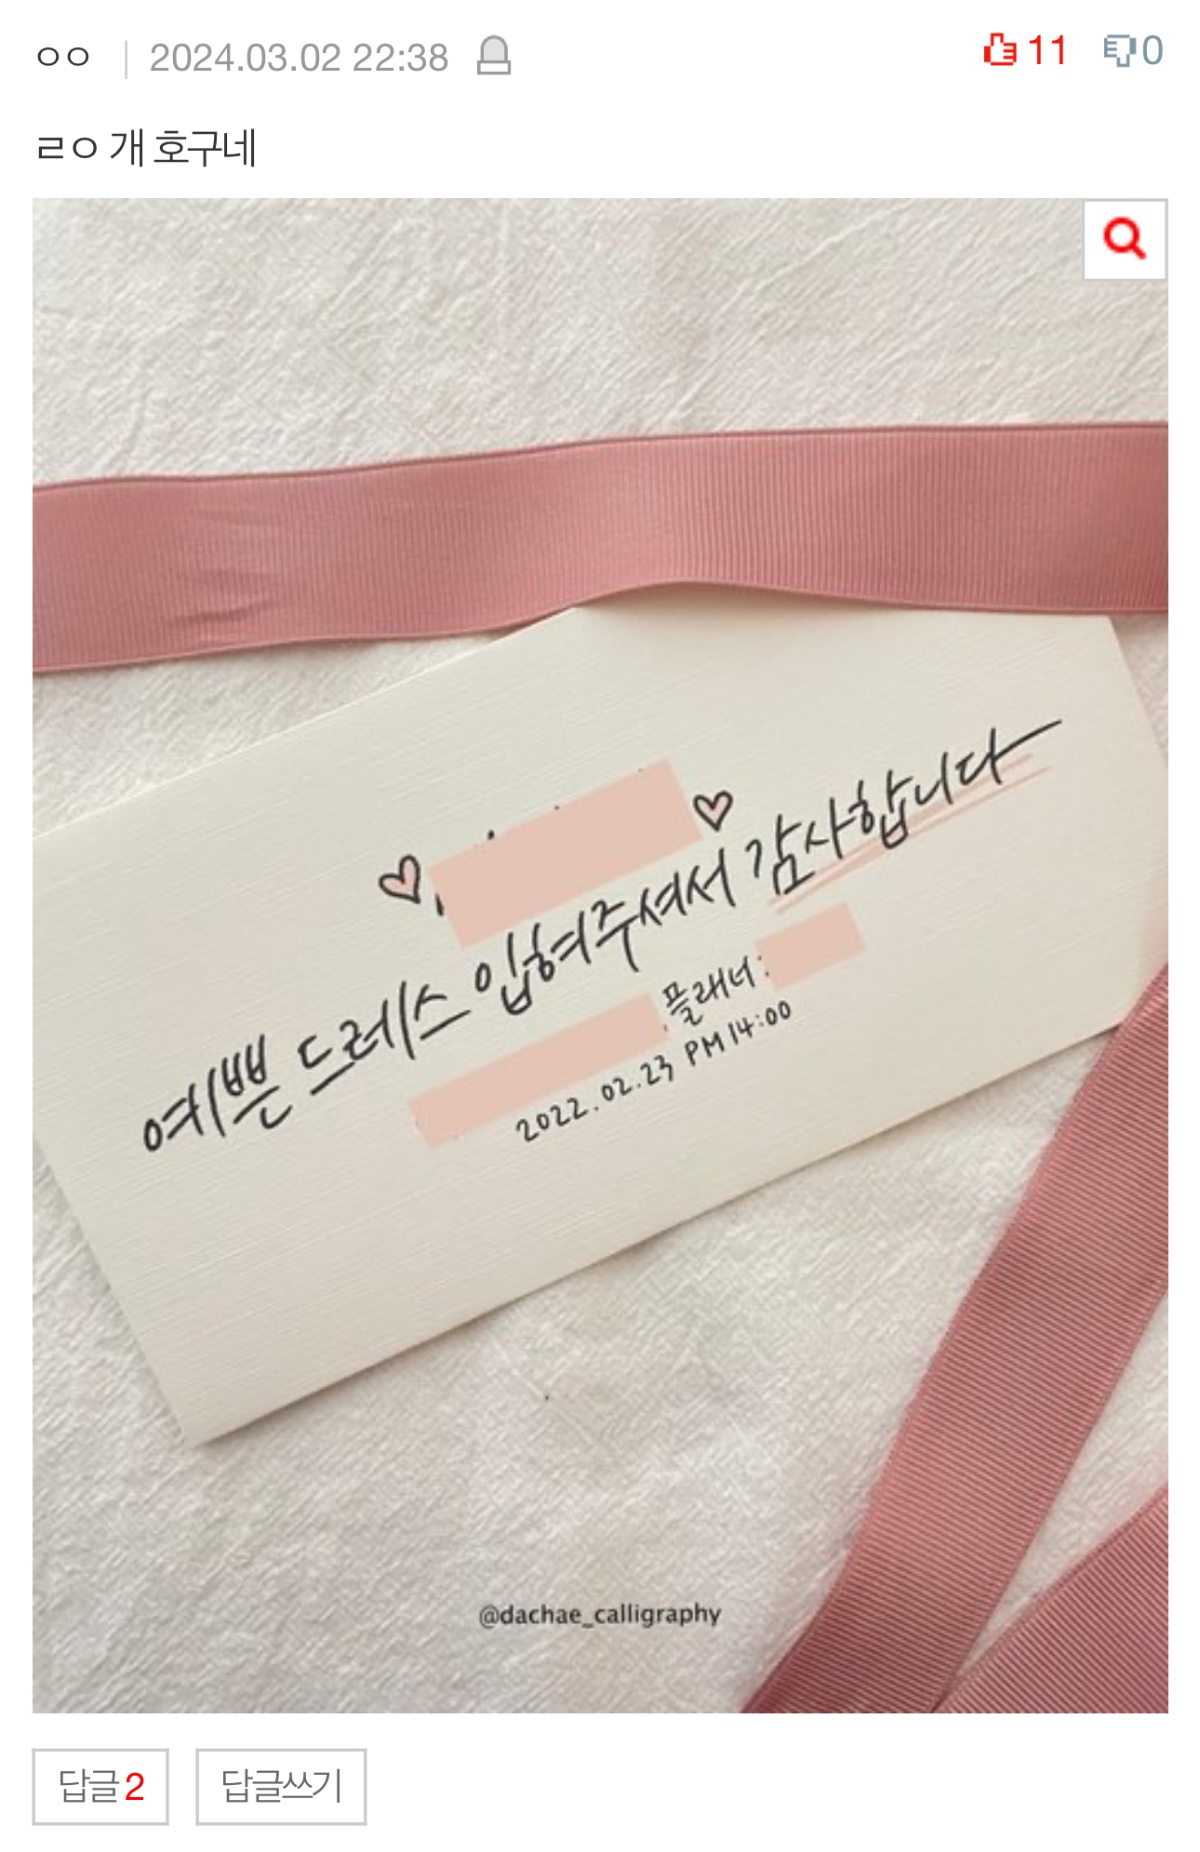 ㅇㅇ 2024.03.02 22:38 11 0
ㄹㅇ 개 호구네
예쁜 드레스 입혀주셔서 감사합니다
플래너:
2022.02.23 PM 14:00
@dachae_calligraphy
답글 2 답글쓰기